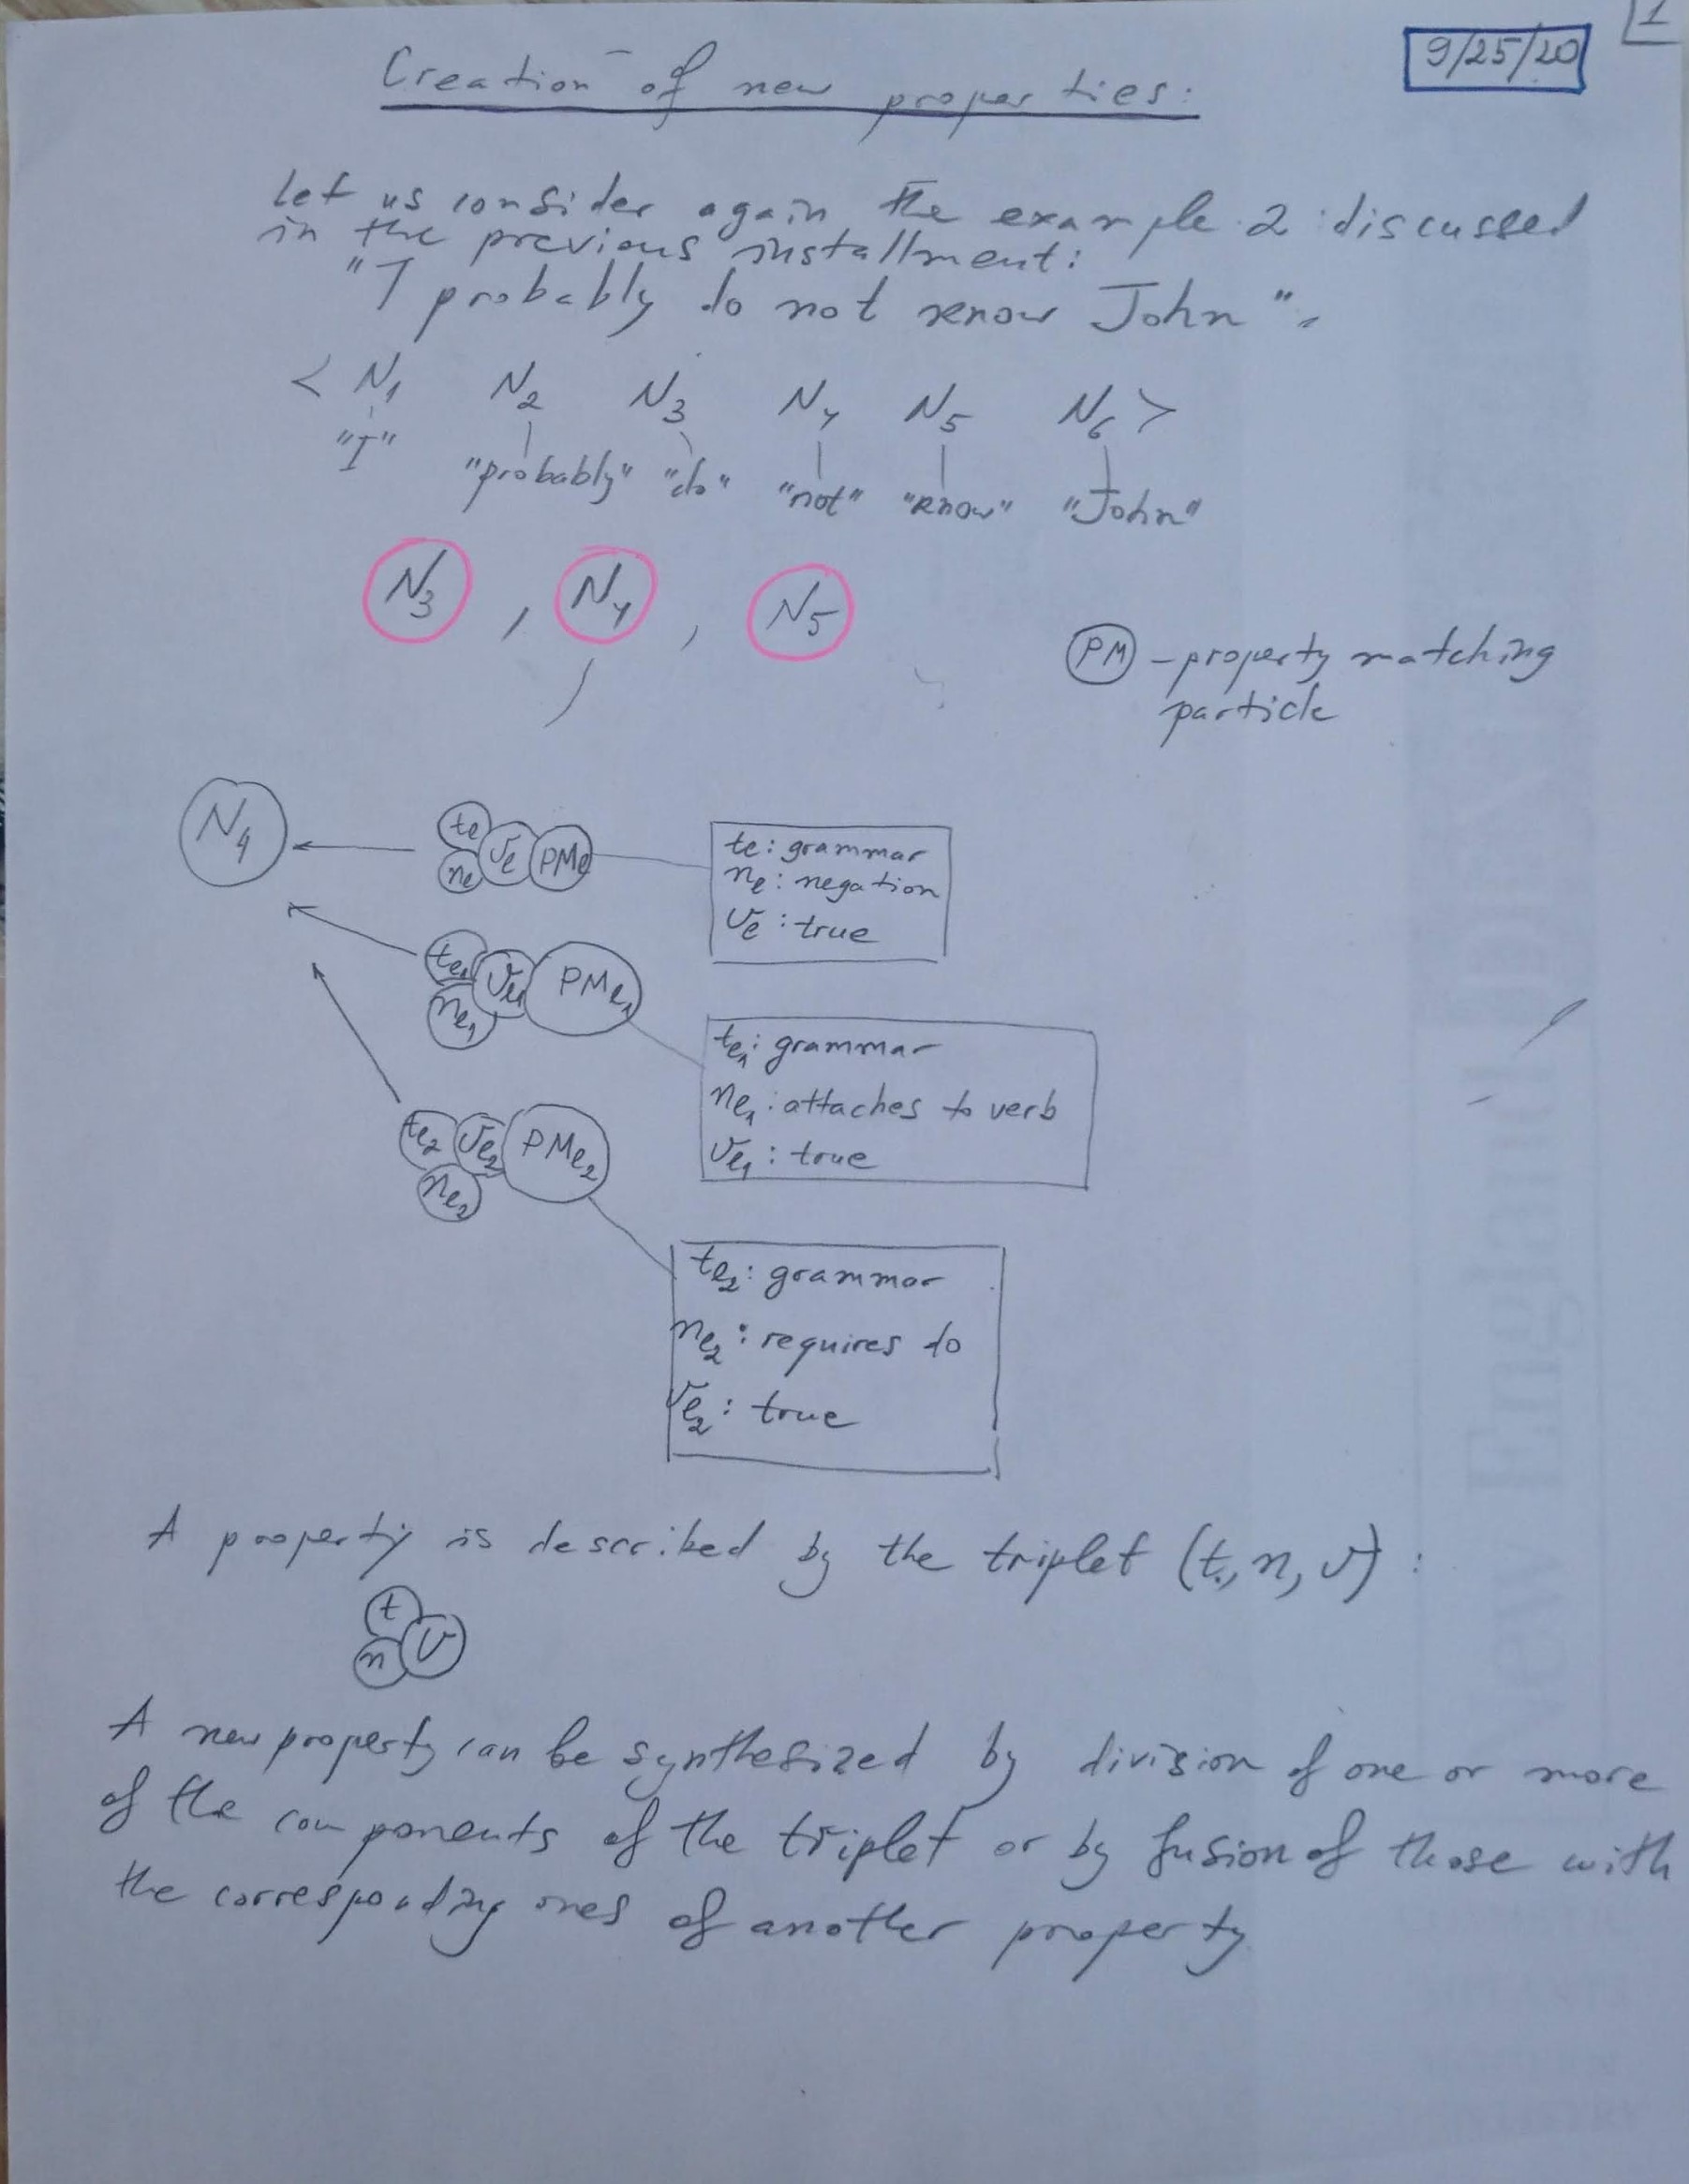 1
9/25/20
Creation of new properties:
let us consider again the example 2 discussed
in the previous installment:
"I probably do not know John".
< N₁ N₂ N₃ N₄ N₅ N₆ >
"I" "probably" "do" "not" "know" "John"
N₃ , N₄ , N₅
PM – property matching
particle
N₄
te ne ve PMe
te: grammar
ne: negation
ve: true
te₁ ne₁ ve₁ PMe₁
te₁: grammar
ne₁: attaches to verb
ve₁: true
te₂ ne₂ ve₂ PMe₂
te₂: grammar
ne₂: requires do
ve₂: true
A property is described by the triplet (t, n, v):
t n v
A new property can be synthesized by division of one or more
of the components of the triplet or by fusion of those with
the corresponding ones of another property